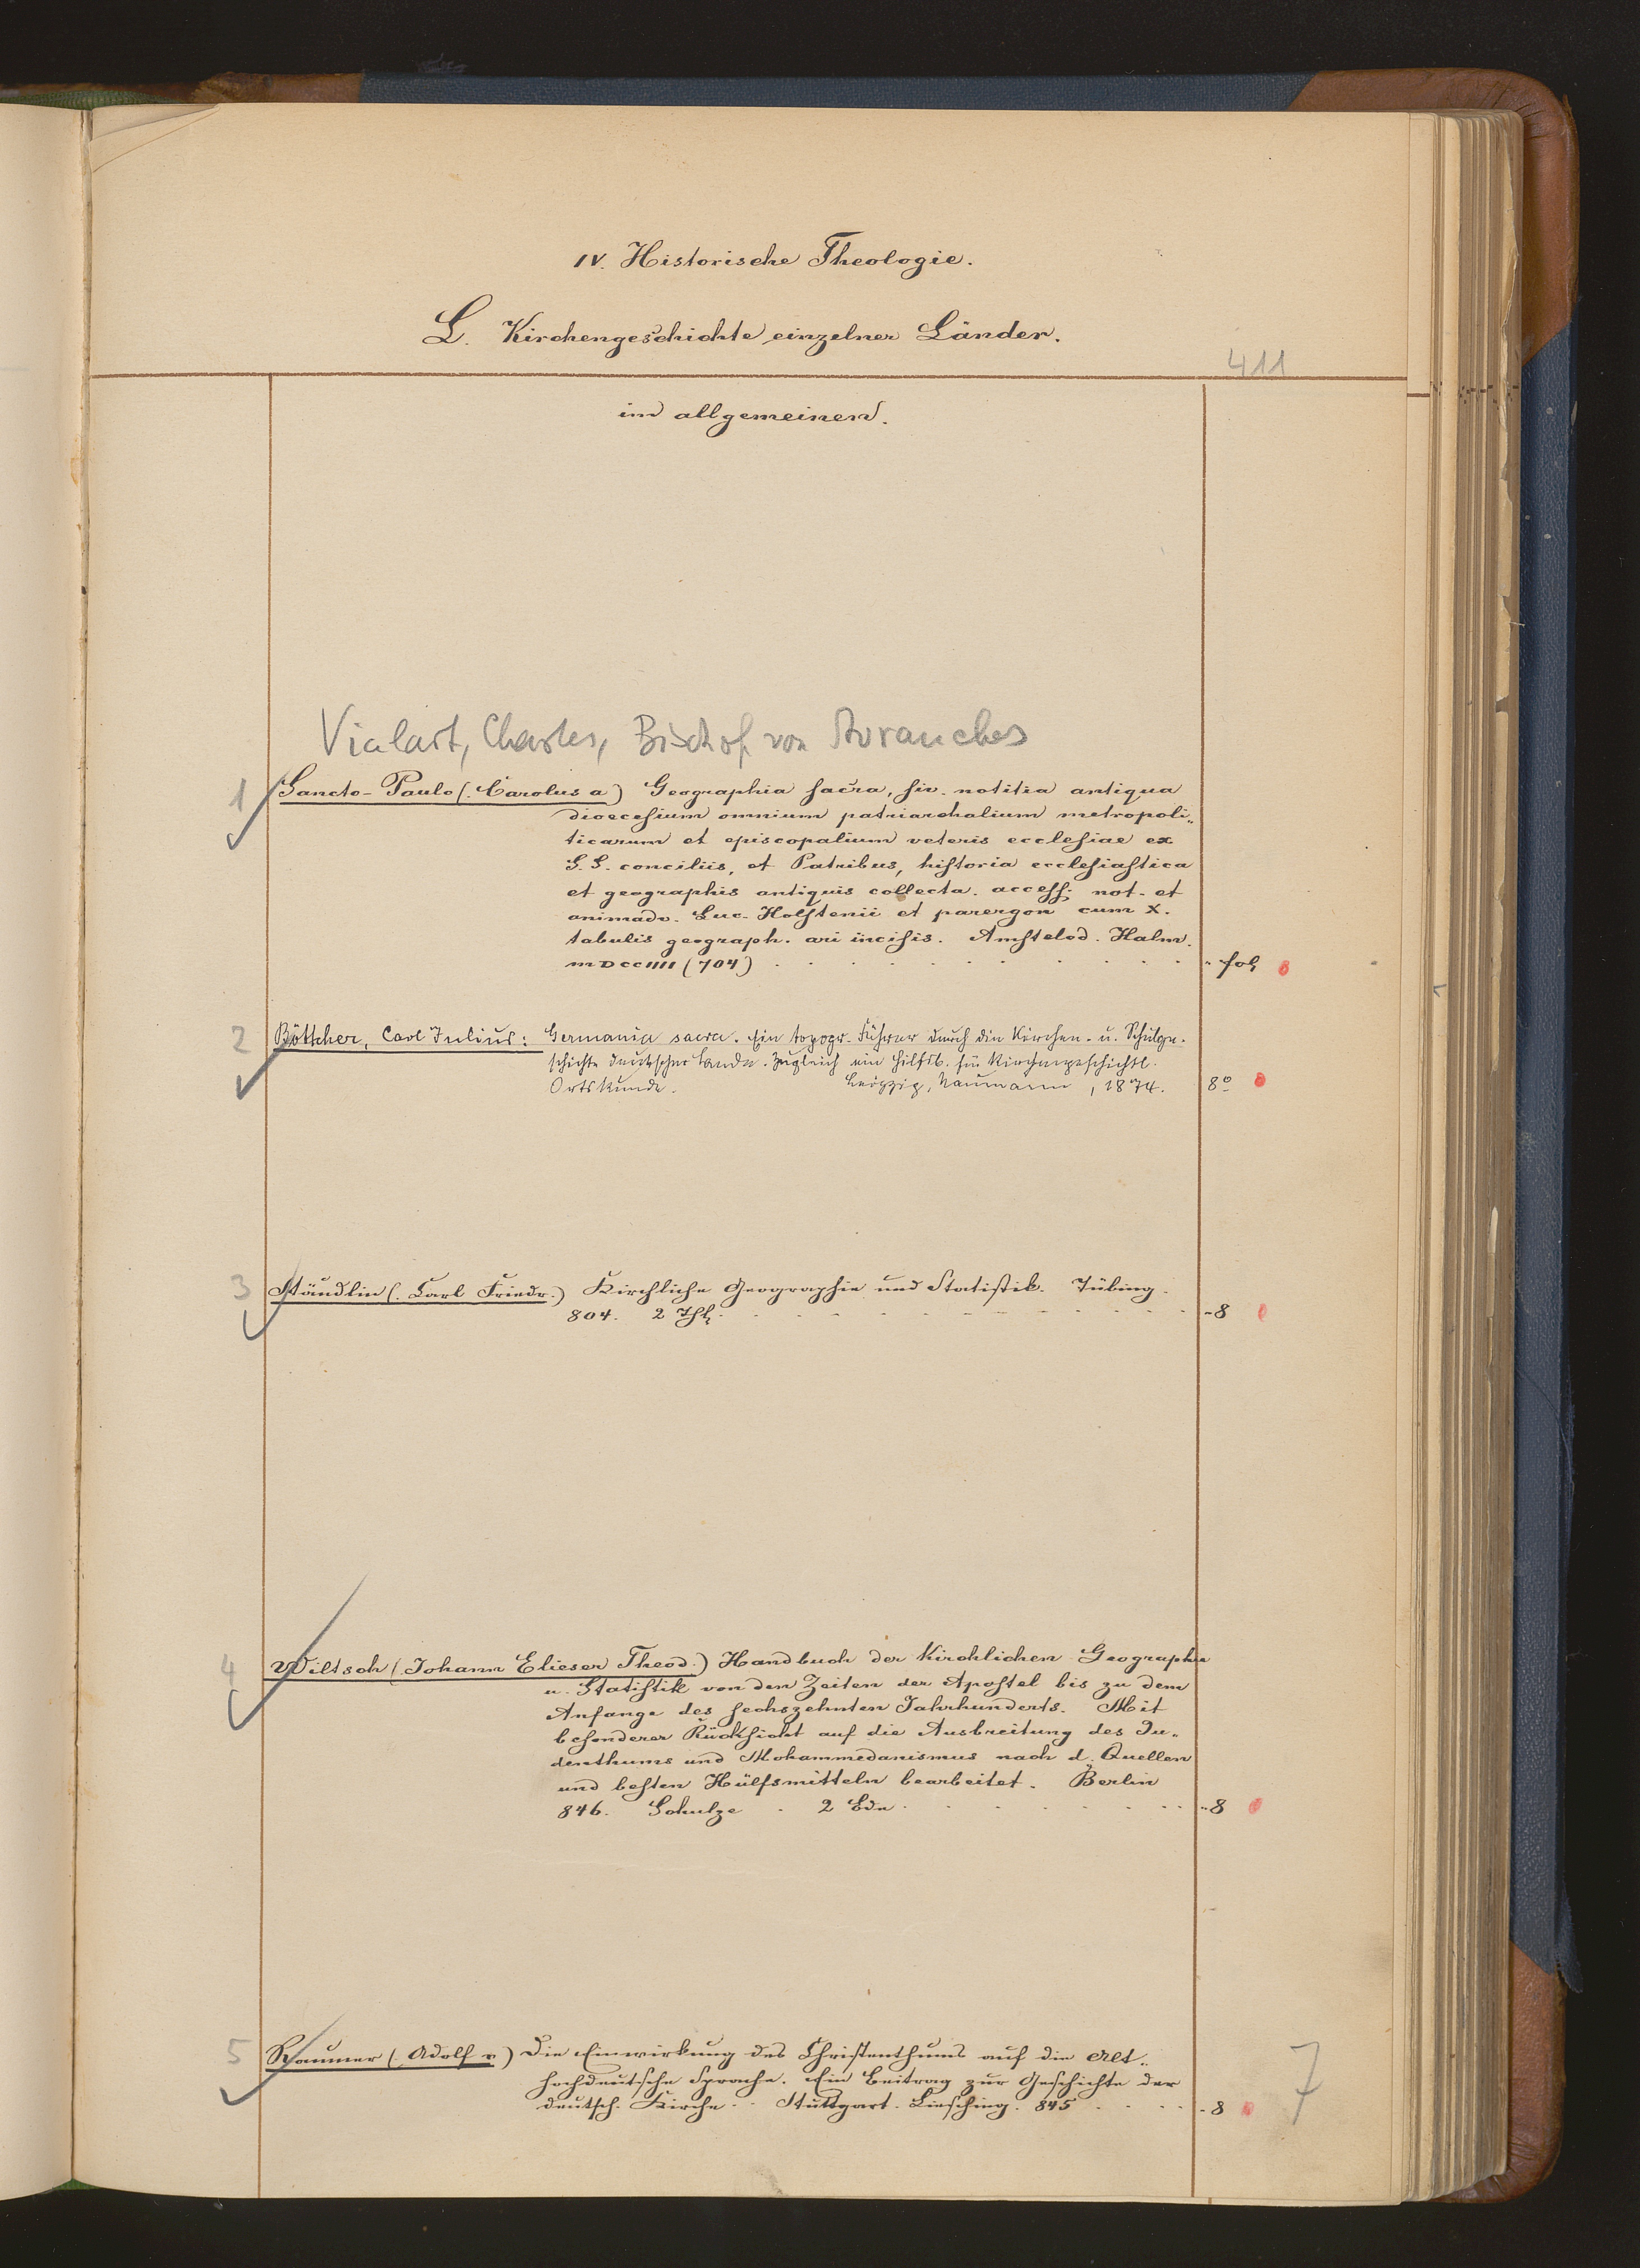 IV. Historische Theologie.
L. Kirchengeschichte einzelner Länder.
411
im allgemeinen.
Vialart, Charles, Bischof von Avranches
1 Sancto-Paulo (Carolus a) Geographia sacra, siv. notitia antiqua
dioecesium omnium patriarchalium metropoli-
ticarum et episcopalium veteris ecclesiae ex
S. S. conciliis, et Patribus, historia ecclesiastica
et geographis antiquis collecta. access. not. et
animadv. Luc. Holstenii et parergon cum X.
tabulis geograph. äri incisis. Amstelod. Halm.
MDCCIIII (704) fol
2 Böttcher, Carl Julius: Germania sacra. Ein topogr. Führer durch die Kirchen- u. Schulge-
schichte deutscher Lande. Zugleich ein Hilfsb. für kirchengeschichtl.
Ortskunde. Leipzig, Naumann, 1874. 8º
3 Stäudlin (Carl Friedr.) Kirchliche Geographie und Statistik. Tübing.
804. 2 Thl. 8
4 Wiltsch (Johann Elieser Theod.) Handbuch der Kirchlichen Geographie
u. Statistik von den Zeiten der Apostel bis zu dem
Anfange des sechszehnten Jahrhunderts. Mit
besonderer Rücksicht auf die Ausbreitung des Ju-
denthums und Mohammedanismus nach d. Quellen
und besten Hülfsmitteln bearbeitet. Berlin
846. Schulze 2 Bde. 8
5 Raumer (Adolf v) Die Einwirkung des Christenthums auf die Alt-
hochdeutsche Sprache. Ein Beitrag zur Geschichte der
deutsch. Kirche. Stuttgart. Liesching. 845 8
7